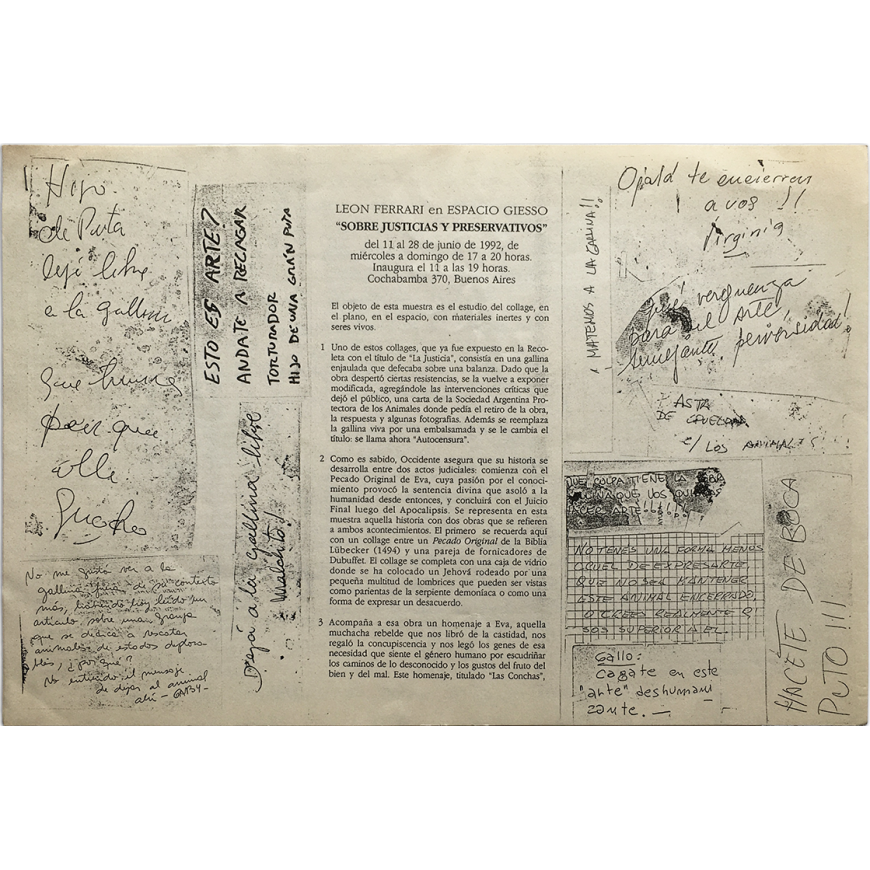 Hijo
de Puta
dejá libre
a la gallina
que
por que
Guacho
No me gustó ver a la
gallina fuera de su contexto
más, habiendo hoy leído un
artículo, sobre una granja
que se dedica a rescatar
animales de estados deplora-
bles, ¿por qué?
No entiendo el mensaje
de dejar al animal
ahí -
ESTO ES ARTE?
ANDATE A RECAGAR
TORTURADOR
HIJO DE UNA GRAN PUTA
Dejá a la gallina libre
Maldito!
LEON FERRARI en ESPACIO GIESSO
"SOBRE JUSTICIAS Y PRESERVATIVOS"
del 11 al 28 de junio de 1992, de
miércoles a domingo de 17 a 20 horas.
Inaugura el 11 a las 19 horas.
Cochabamba 370, Buenos Aires
El objeto de esta muestra es el estudio del collage, en
el plano, en el espacio, con materiales inertes y con
seres vivos.
1 Uno de estos collages, que ya fue expuesto en la Reco-
leta con el título de "La Justicia", consistía en una gallina
enjaulada que defecaba sobre una balanza. Dado que la
obra despertó ciertas resistencias, se la vuelve a exponer
modificada, agregándole las intervenciones críticas que
dejó el público, una carta de la Sociedad Argentina Pro-
tectora de los Animales donde pedía el retiro de la obra,
la respuesta y algunas fotografías. Además se reemplaza
la gallina viva por una embalsamada y se le cambia el
título: se llama ahora "Autocensura".
2 Como es sabido, Occidente asegura que su historia se
desarrolla entre dos actos judiciales: comienza con el
Pecado Original de Eva, cuya pasión por el conoci-
miento provocó la sentencia divina que asoló a la
humanidad desde entonces, y concluirá con el Juicio
Final luego del Apocalipsis. Se representa en esta
muestra aquella historia con dos obras que se refieren
a ambos acontecimientos. El primero se recuerda aquí
con un collage entre un Pecado Original de la Biblia
Lübecker (1494) y una pareja de fornicadores de
Dubuffet. El collage se completa con una caja de vidrio
donde se ha colocado un Jehová rodeado por una
pequeña multitud de lombrices que pueden ser vistas
como parientas de la serpiente demoníaca o como una
forma de expresar un desacuerdo.
3 Acompaña a esa obra un homenaje a Eva, aquella
muchacha rebelde que nos libró de la castidad, nos
regaló la concupiscencia y nos legó los genes de esa
necesidad que siente el género humano por escudriñar
los caminos de lo desconocido y los gustos del fruto del
bien y del mal. Este homenaje, titulado "Las Conchas",
MATEMOS A LA GALLINA!!
Ojalá te encierren
a vos !!
Virginia
Qué verguenza
para el Arte,
semejante perversidad!
ASTA
DE CRUELDAD
c/ LOS ANIMALES
QUE CULPA TIENE LA
GALLINA QUE VOS QUIERAS
HACER ARTE!!!!!!
NO TENES UNA FORMA MENOS
CRUEL DE EXPRESARTE
QUE NO SEA MANTENER
ESTE ANIMAL ENCERRADO,
O CREES REALMENTE Q'
SOS SUPERIOR A EL.
Gallo:
Cagate en este
"arte" deshumani
zante. —
HACETE DE BOCA
PUTO!!!